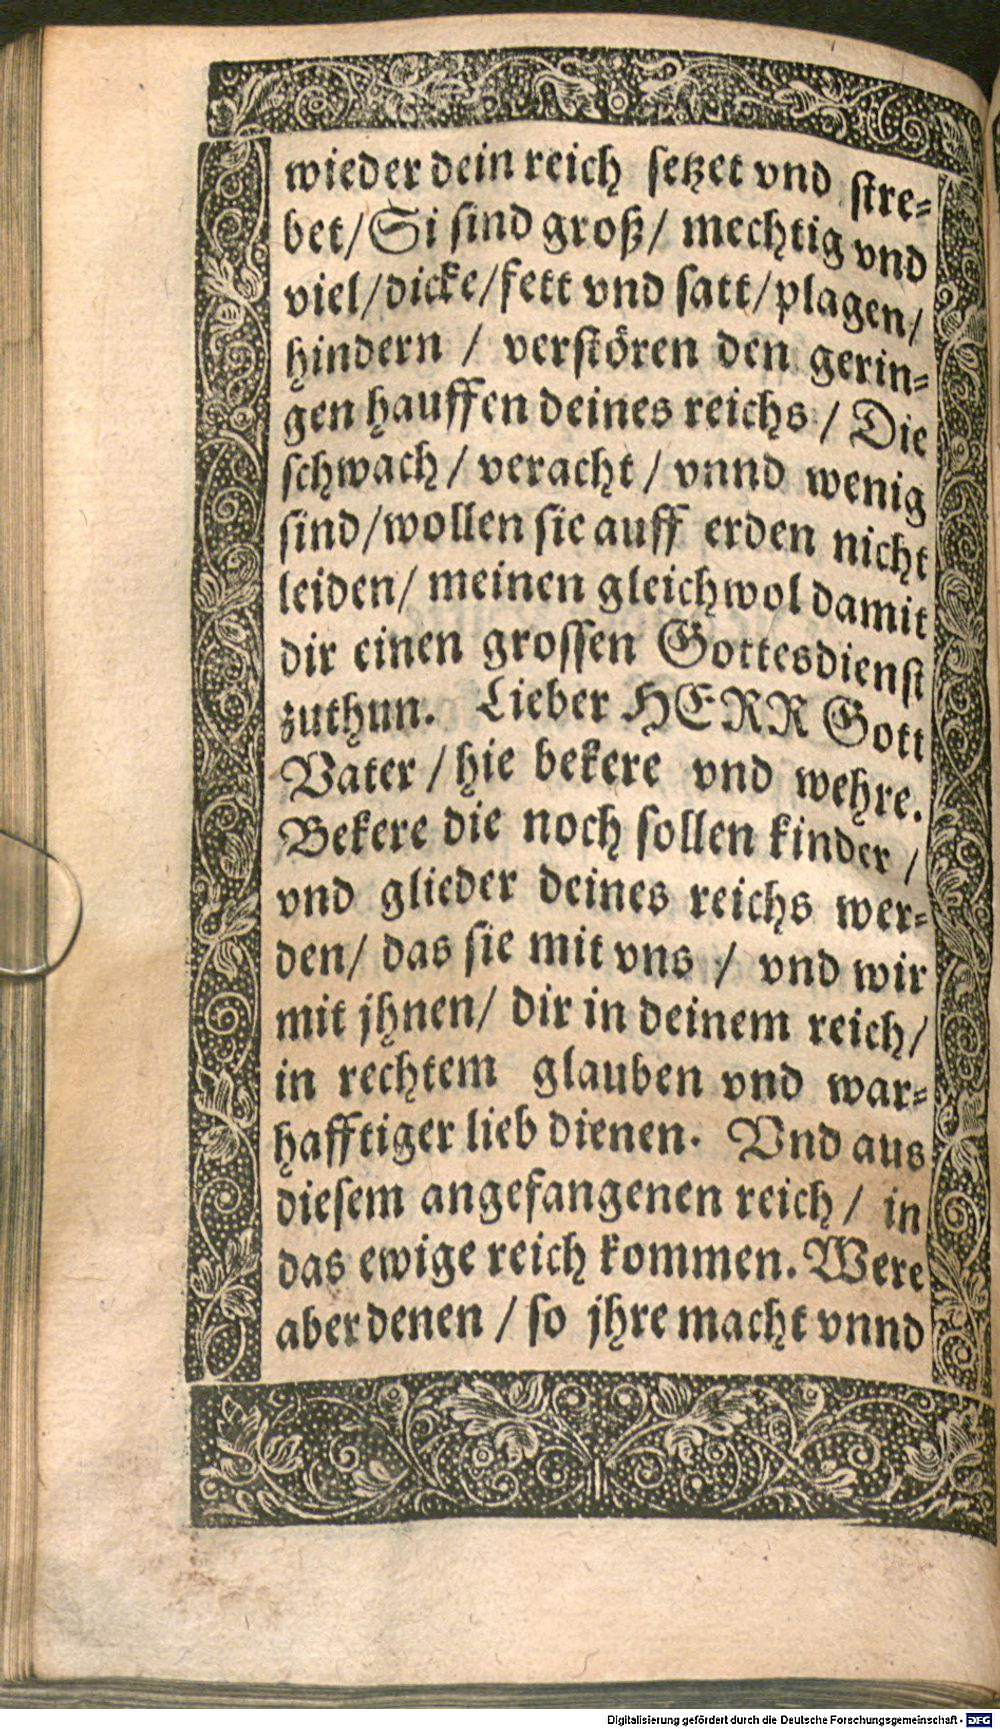 wieder dein reich setzet vnd stre-
bet/Si sind groß/ mechtig vnd
viel/dicke/fett vnd satt/plagen/
hindern / verstören den gerin-
gen hauffen deines reichs / Die
schwach/ veracht / vnnd wenig
sind/wollen sie auff erden nicht
leiden/ meinen gleichwol damit
dir einen grossen Gottesdienst
zuthun. Lieber HERR Gott
Vater / hie bekere vnd wehre.
Bekere die noch sollen kinder /
vnd glieder deines reichs wer-
den/ das sie mit vns / vnd wir
mit jhnen/ dir in deinem reich/
in rechtem glauben vnd war-
hafftiger lieb dienen. Vnd aus
diesem angefangenen reich / in
das ewige reich kommen. Were
aber denen / so jhre macht vnnd
Digitalisierung gefördert durch die Deutsche Forschungsgemeinschaft - DFG